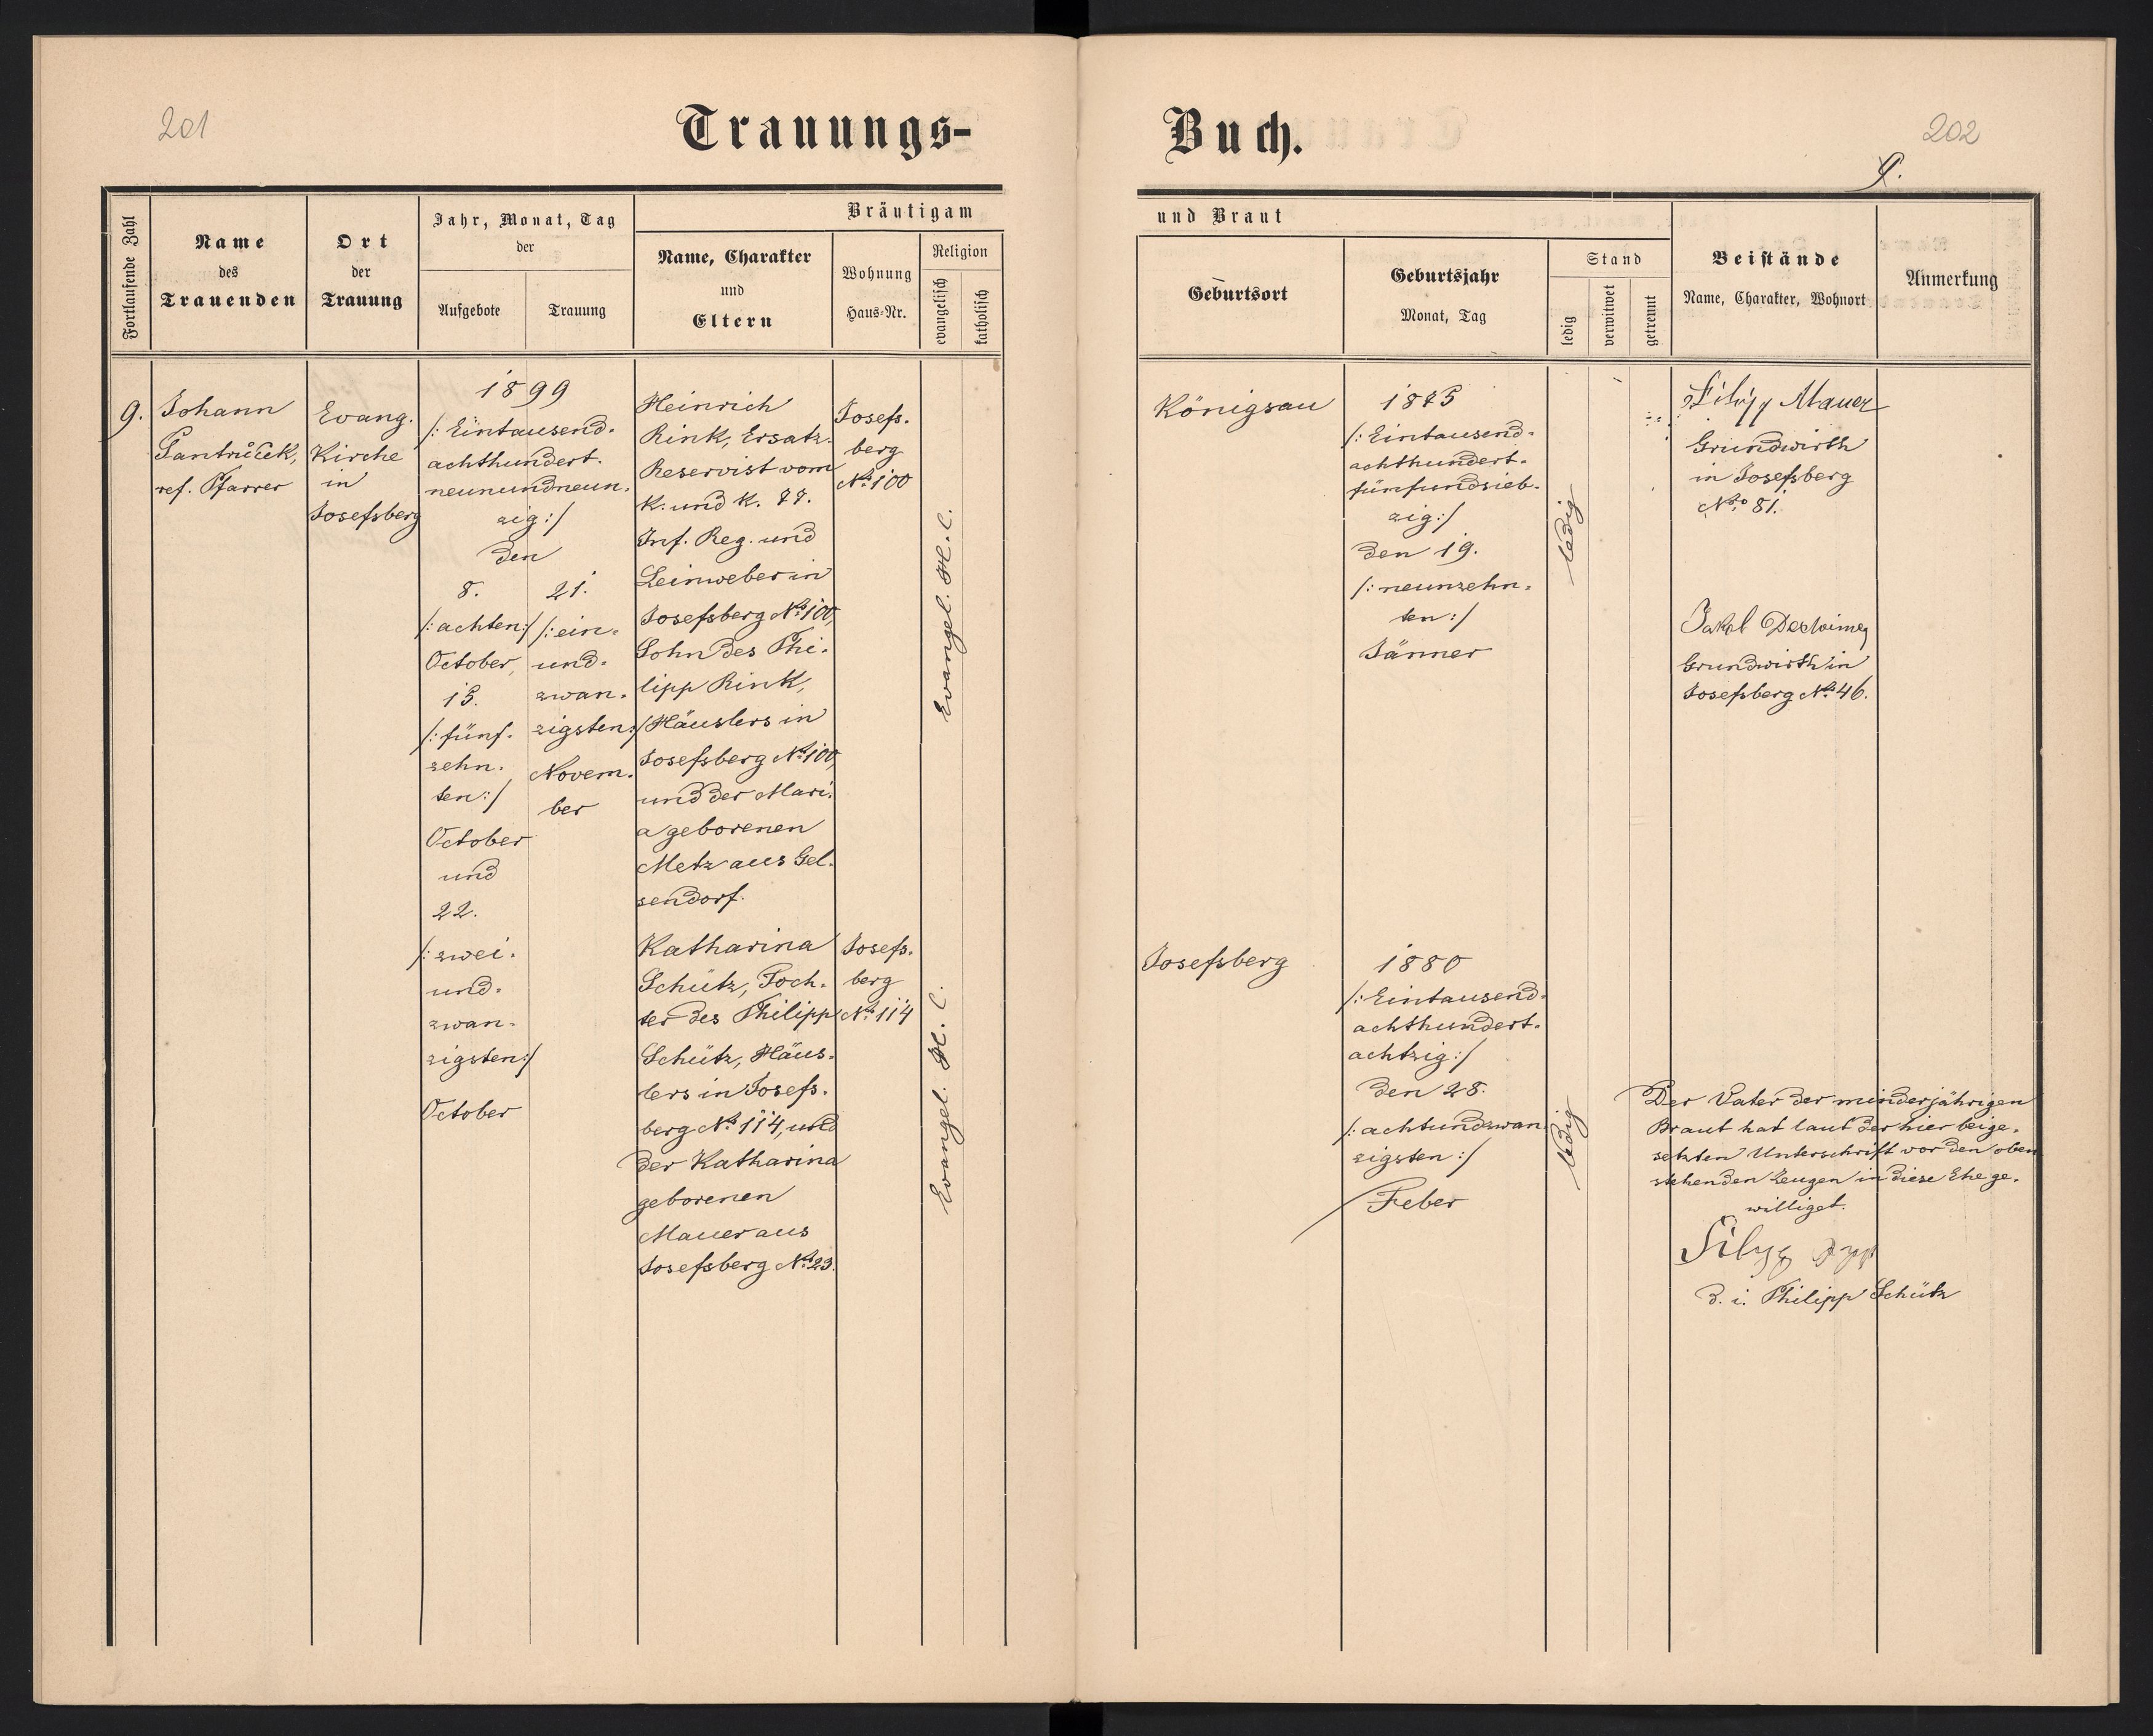 201
Trauungs-
Fortlaufende Zahl
Name
des
Trauenden
Ort
der
Trauung
Jahr, Monat, Tag
der
Aufgebote
Trauung
Bräutigam
Name, Charakter
und
Eltern
Wohnung
Haus-Nr.
Religion
evangelisch
katholisch
9.
Johann
Pantrůček,
ref. Pfarrer
Evang.
Kirche
in
Josefsberg
1899
/: Eintausend-
achthundert-
neunundneun-
zig :/
den
8.
/: achten :/
October,
15.
/: fünf-
zehn-
ten :/
October
und
22.
/: zwei-
und-
zwan-
zigsten :/
October
21.
/: ein-
und-
zwan-
zigsten :/
Novem-
ber
Heinrich
Rink, Ersatz-
Reservist vom
K. und K. 77.
Inf. Reg. und
Leinweber in
Josefsberg No 100,
Sohn des Phi-
lipp Rink,
Häuslers in
Josefsberg No 100,
und der Mari-
a geborenen
Metz aus Gel-
sendorf.
Josefs-
berg
No 100
Evangel. H. C.
Katharina
Schütz, Toch-
ter des Philipp
Schütz, Häus-
lers in Josefs-
berg No 114, und
der Katharina
geborenen
Mauer aus
Josefsberg No 23.
Josefs-
berg
No 114
Evangel. H. C.
Buch.
202
9.
und Braut
Geburtsort
Geburtsjahr
Monat, Tag
Stand
ledig
verwitwet
getrennt
Beistände
Name, Charakter, Wohnort
Anmerkung
Königsau
1875
/: Eintausend-
achthundert-
fünfundsieb-
zig :/
den 19.
/: neunzehn-
ten :/
Jänner
ledig
Filipp Mauer
Grundwirth
in Josefsberg
No 81.
Jakob
Grundwirth in
Josefsberg No 46.
Josefsberg
1880
/: Eintausend-
achthundert-
achtzig :/
den 28.
/: achtundzwan-
zigsten :/
Feber
ledig
Der Vater der minderjährigen
Braut hat laut der hier beige-
setzten Unterschrift vor den oben
stehenden Zeugen in diese Ehe ge-
williget.
Filipp
d. i. Philipp Schütz